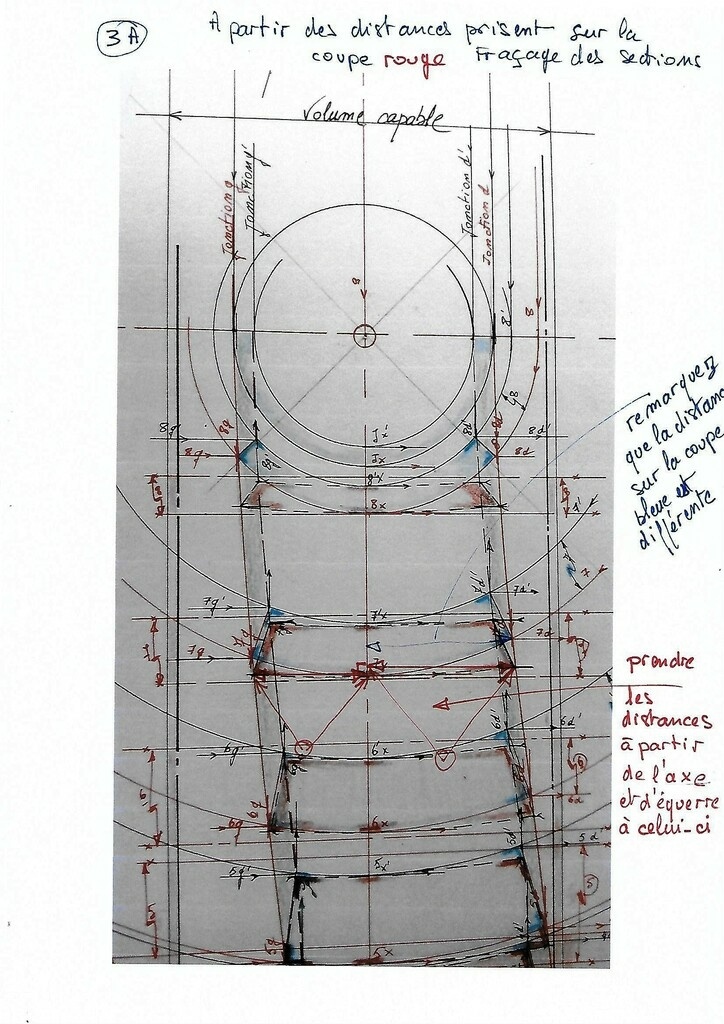 3A
A partir des distances prisent sur la
coupe rouge Traçage des sections
Volume capable
Jonction g
Jonction g'
Jonction d'
Jonction d
8
8'
8
48
8g'
8g
8g
8g
8d
8d
8d'
8d
Jx'
Jx
8'x
8x
remarquez
que la distance
sur la coupe
bleue est
différente
7
7g'
7'x
7d'
7d'
7g
7g
7d
6g'
6x
6d
6d'
6g
6g
6x
6d
6
5g'
5x'
5d
5d
5g
5x
5
prendre
les
distances
à partir
de l'axe
et d'équerre
à celui-ci